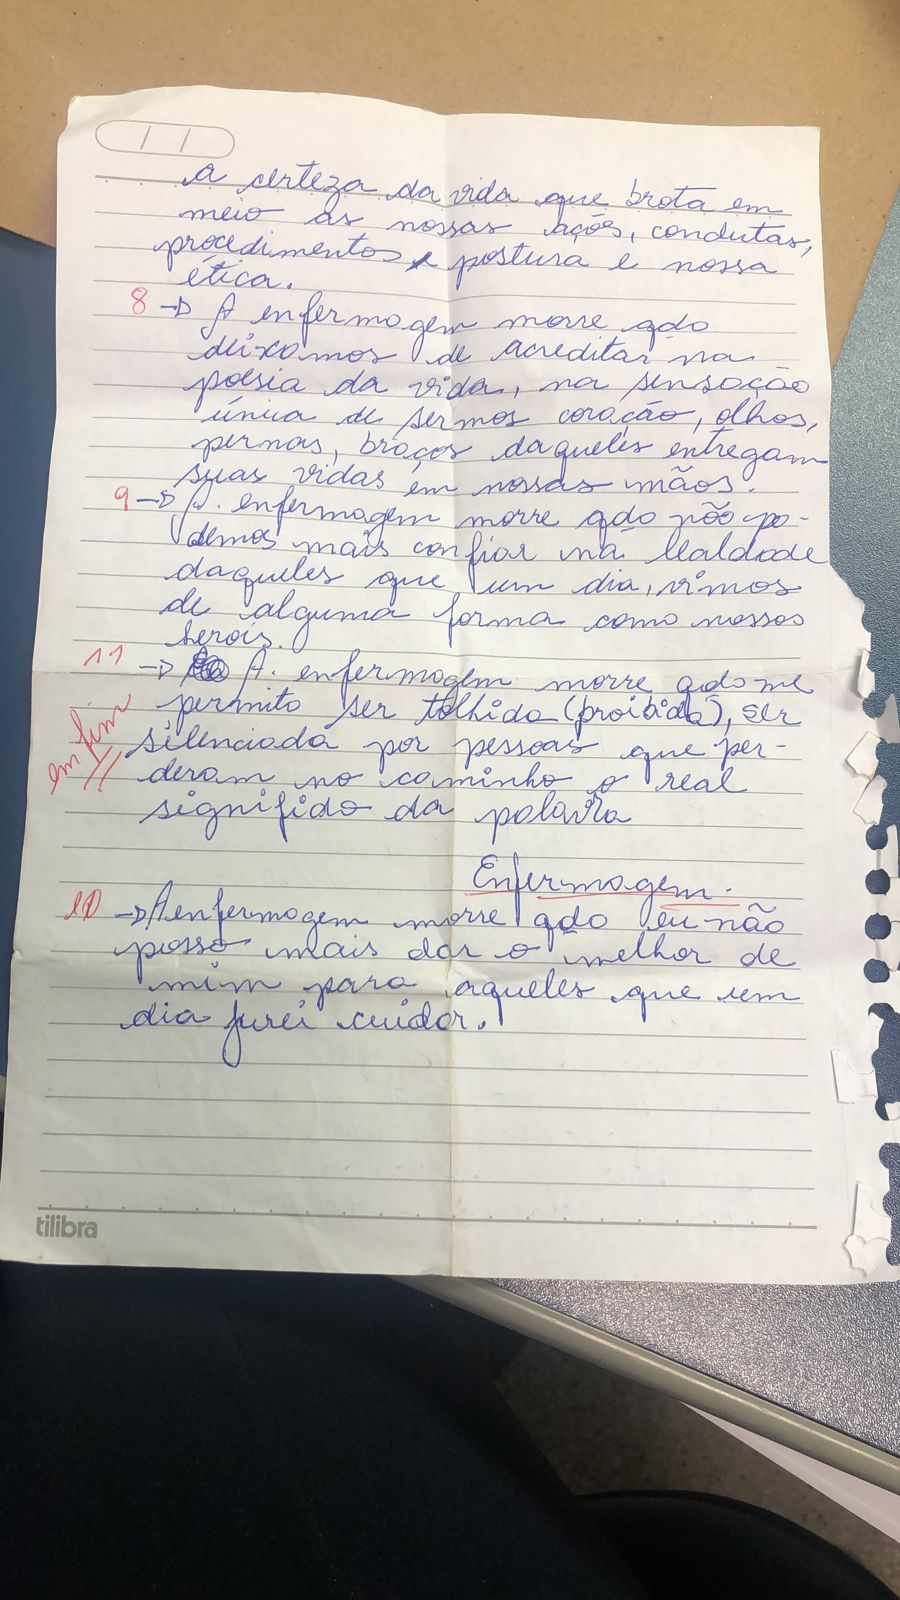 A certeza da vida que brota em
meio as nossas ações, condutas,
procedimentos, postura e nossa
ética.
8 → A enfermagem morre qdo
deixamos de acreditar na
poesia da vida, na sensação
única de sermos coração, olhos,
pernas, braços daqueles entregam
suas vidas em nossas mãos.
9 → A. enfermagem morre qdo não po-
demos mais confiar na lealdade
daqueles que um dia, vimos
de alguma forma como nossos
herois.
11 → A. enfermagem morre qdo me
permito ser tolhida (proibida), ser
em fim silenciada por pessoas que per-
deram no caminho o real
signifido da palavra
Enfermagem.
10 → A enfermagem morre qdo eu não
posso mais dar o melhor de
mim para aqueles que um
dia jurei cuidar.
tilibra